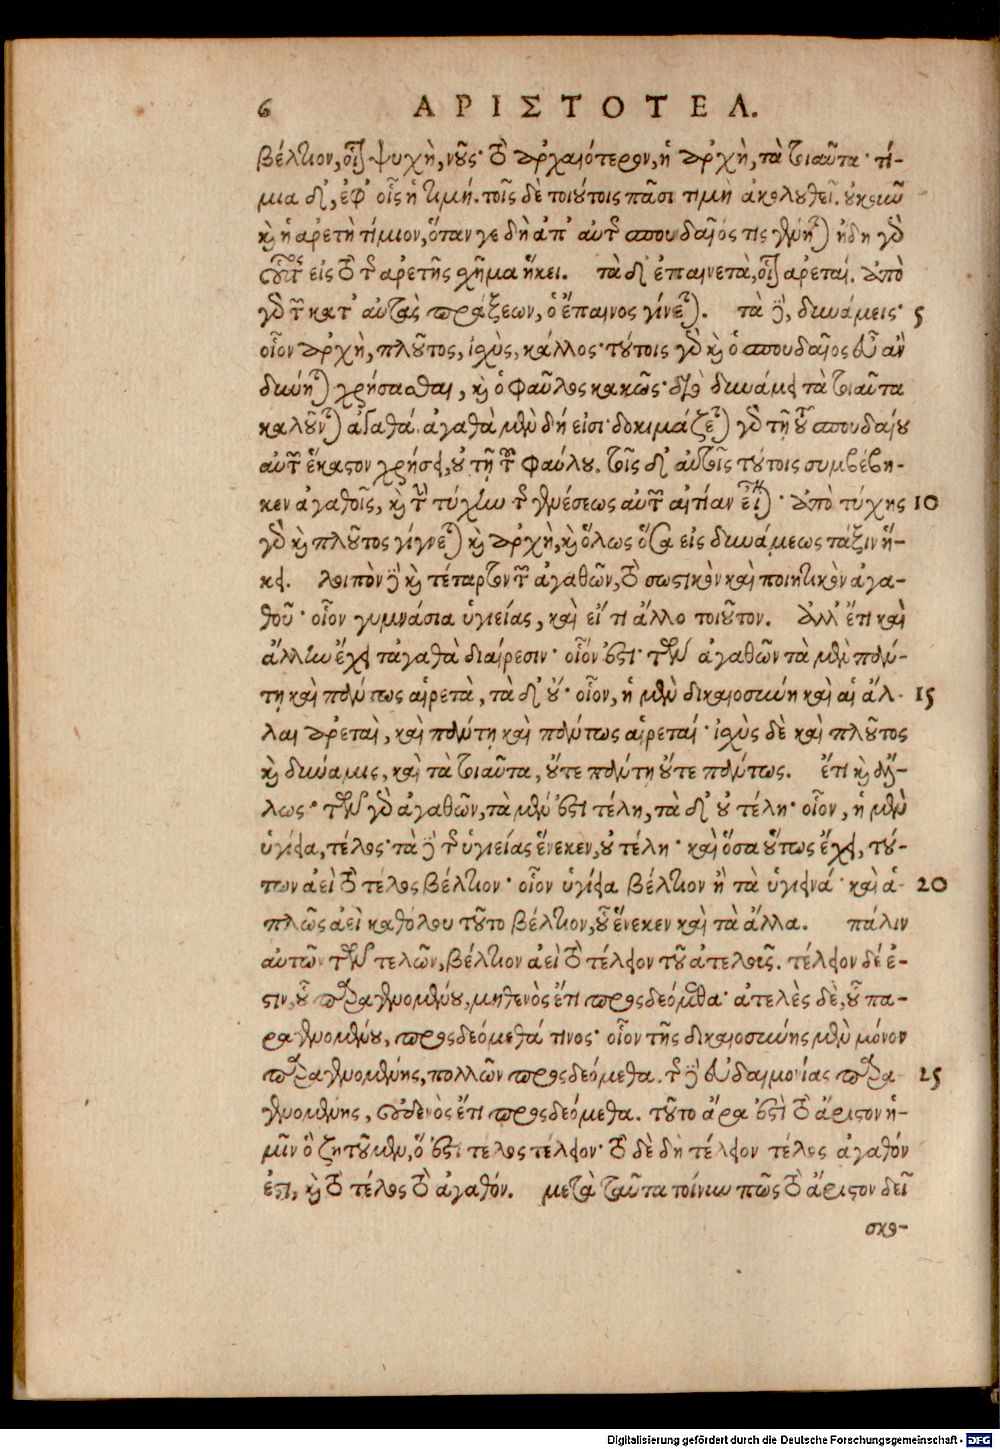 6 ΑΡΙΣΤΟΤΕΛ.
βέλτιον, οἷον ψυχὴ, νοῦς· τὸ ἀρχαιότερον, ἡ ἀρχὴ, τὰ τοιαῦτα· τί-
μια δ’, ἐφ’ οἷς ἡ τιμή. τοῖς δὲ τοιούτοις πᾶσι τιμὴ ἀκολουθεῖ. οὐκοιῶ
καὶ ἡ ἀρετὴ τίμιον, ὅταν γε δὴ ἀπ’ αὐτῆς σπουδαῖός τις γένηται) ἤδη γὰρ
οὗτος εἰς τὸ τῆς ἀρετῆς σχῆμα ἥκει. τὰ δ’ ἐπαινετὰ, οἷον ἀρεταί. ἀπὸ
γὰρ τῶν κατ’ αὐτὰς πράξεων, ὁ ἔπαινος γίνεται). τὰ δὲ, δυνάμεις· 5
οἷον ἀρχὴ, πλοῦτος, ἰσχὺς, κάλλος· τούτοις γὰρ καὶ ὁ σπουδαῖος εὖ ἂν
δύνηται) χρήσασθαι, καὶ ὁ φαῦλος κακῶς· διὸ δυνάμει τὰ τοιαῦτα
καλοῦνται) ἀγαθά. ἀγαθὰ μὲν δή εἰσι· δοκιμάζεται) γὰρ τῇ τοῦ σπουδαίου
αὐτῶν ἕκαστον χρήσει, οὐ τῇ τοῦ φαύλου. τοῖς δ’ αὐτοῖς τούτοις συμβέβη-
κεν ἀγαθοῖς, καὶ τὴν τύχην τῆς γενέσεως αὐτῶν αἰτίαν εἶναι)· ἀπὸ τύχης 10
γὰρ καὶ πλοῦτος γίγνεται) καὶ ἀρχὴ, καὶ ὅλως ὅσα εἰς δυνάμεως τάξιν ἥ-
κει. λοιπὸν δὲ καὶ τέταρτον τῶν ἀγαθῶν, τὸ σωστικὸν καὶ ποιητικὸν ἀγα-
θοῦ· οἷον γυμνάσια ὑγιείας, καὶ εἴ τι ἄλλο τοιοῦτον. Ἀλλ’ ἔτι καὶ
ἄλλην ἔχει τἀγαθὰ διαίρεσιν· οἷόν ἐστι· τῶν ἀγαθῶν τὰ μὲν πάν-
τη καὶ πάντως αἱρετὰ, τὰ δ’ οὔ· οἷον, ἡ μὲν δικαιοσύνη καὶ αἱ ἄλ- 15
λαι ἀρεταὶ, καὶ πάντη καὶ πάντως αἱρεταί· ἰσχὺς δὲ καὶ πλοῦτος
καὶ δύναμις, καὶ τὰ τοιαῦτα, οὔτε πάντη οὔτε πάντως. ἔτι καὶ ἄλ-
λως· τῶν γὰρ ἀγαθῶν, τὰ μέν ἐστι τέλη, τὰ δ’ οὐ τέλη· οἷον, ἡ μὲν
ὑγίεια, τέλος· τὰ δὲ τῆς ὑγιείας ἕνεκεν, οὐ τέλη· καὶ ὅσα οὕτως ἔχει, τού-
των ἀεὶ τὸ τέλος βέλτιον· οἷον ὑγίεια βέλτιον ἢ τὰ ὑγιεινά· καὶ ἁ- 20
πλῶς ἀεὶ καθόλου τοῦτο βέλτιον, οὗ ἕνεκεν καὶ τὰ ἄλλα. πάλιν
αὐτῶν τῶν τελῶν, βέλτιον ἀεὶ τὸ τέλειον τοῦ ἀτελοῦς. τέλειον δέ ἐ-
στιν, οὗ παραγενομένου, μηθενὸς ἔτι προσδεόμεθα· ἀτελὲς δὲ, οὗ πα-
ραγενομένου, προσδεόμεθά τινος· οἷον τῆς δικαιοσύνης μὲν μόνον
παραγενομένης, πολλῶν προσδεόμεθα. τῆς δὲ εὐδαιμονίας παρα 25
γενομένης, οὐδενὸς ἔτι προσδεόμεθα. τοῦτο ἄρα ἐστὶ τὸ ἄριστον ἡ-
μῖν ὃ ζητοῦμεν, ὅ ἐστι τέλος τέλειον· τὸ δὲ δὴ τέλειον τέλος ἀγαθόν
ἐστι, καὶ τὸ τέλος τὸ ἀγαθόν. μετὰ ταῦτα τοίνυν πῶς τὸ ἄριστον δεῖ
σκο-
Digitalisierung gefördert durch die Deutsche Forschungsgemeinschaft - DFG